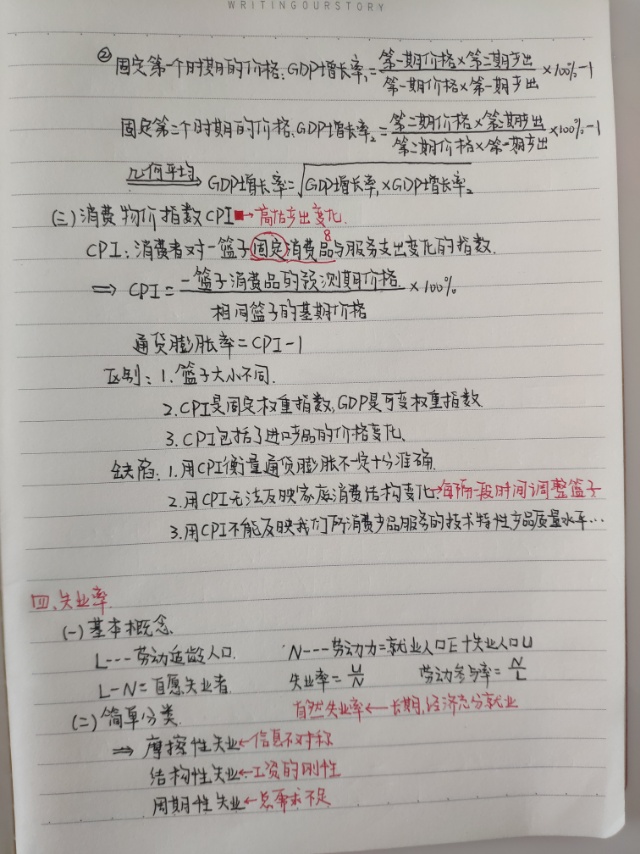 WRITINGOURSTORY
② 固定第一个时期的价格:GDP增长率₁=第一期价格×第二期产出/第一期价格×第一期产出×100%-1
固定第二个时期的价格,GDP增长率₂=第二期价格×第二期产出/第二期价格×第一期产出×100%-1
几何平均 GDP增长率=√GDP增长率₁×GDP增长率₂
(三)消费物价指数CPI→高估支出变化.
CPI:消费者对一篮子固定消费品与服务支出变化的指数.
8
⇒ CPI=一篮子消费品的预测期价格/相同篮子的基期价格×100%
通货膨胀率=CPI-1
区别:1.篮子大小不同.
2.CPI是固定权重指数,GDP是可变权重指数
3.CPI包括了进口产品的价格变化、
缺陷:1.用CPI衡量通货膨胀不一定十分准确.
2.用CPI无法反映家庭消费结构变化→每隔一段时间调整篮子
3.用CPI不能反映我们所消费产品服务的技术特性产品质量水平…
四、失业率.
(一)基本概念、
L---劳动适龄人口. N---劳动力=就业人口E+失业人口U
L-N=自愿失业者 失业率=U/N 劳动参与率=N/L
(二)简单分类 自然失业率←长期,经济充分就业
⇒ 摩擦性失业←信息不对称
结构性失业←工资的刚性
周期性失业←总需求不足